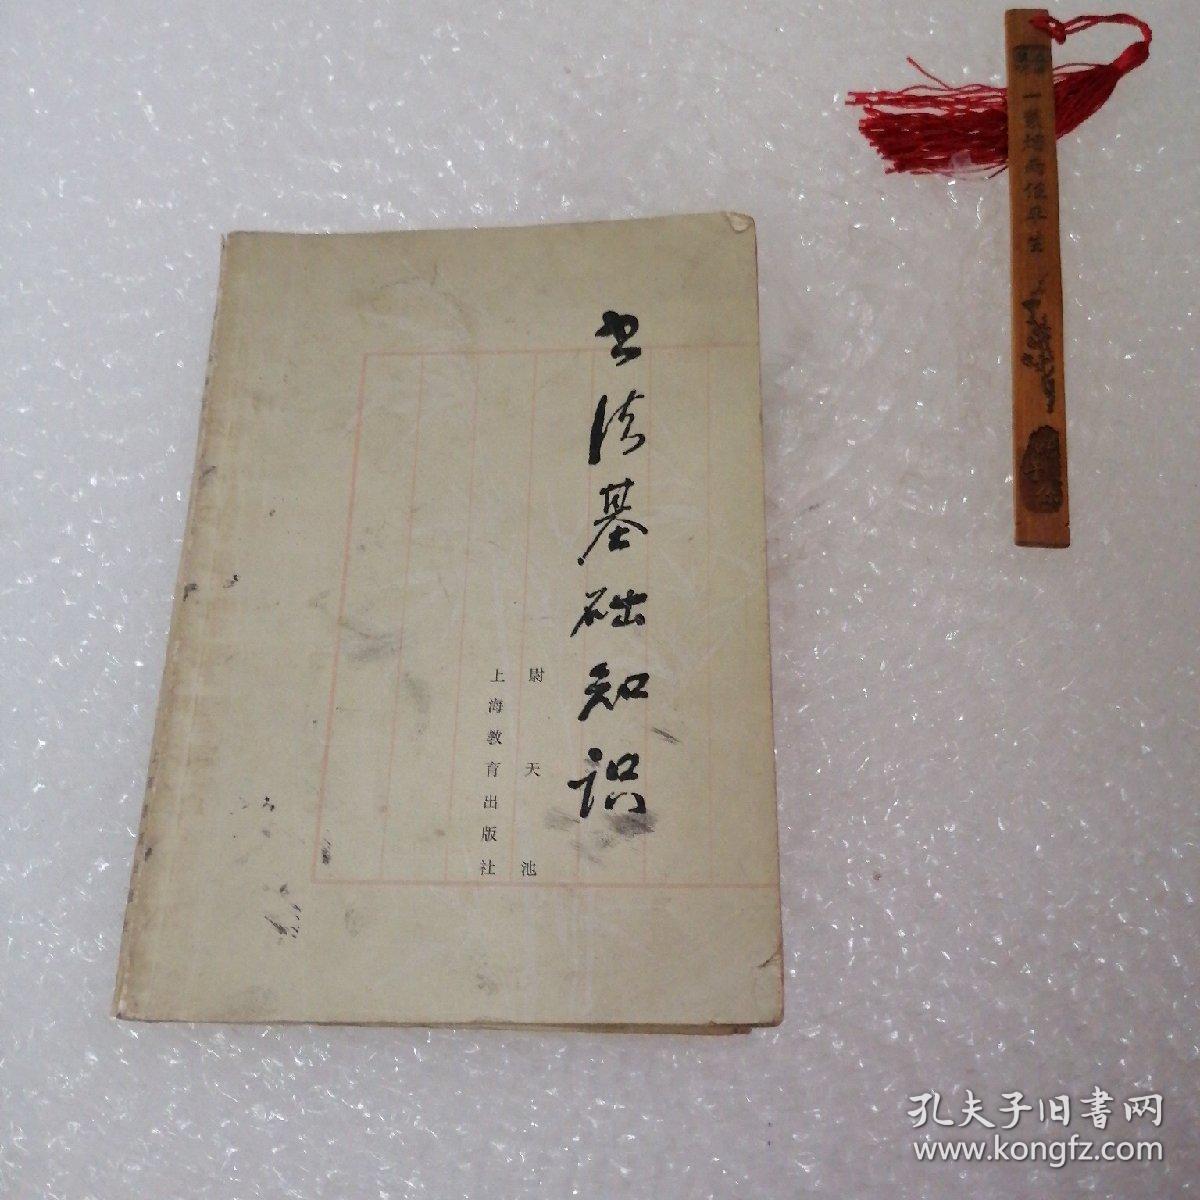 书法基础知识
尉天池
上海教育出版社
一蓑烟雨任平生
孔夫子旧書网
www.kongfz.com